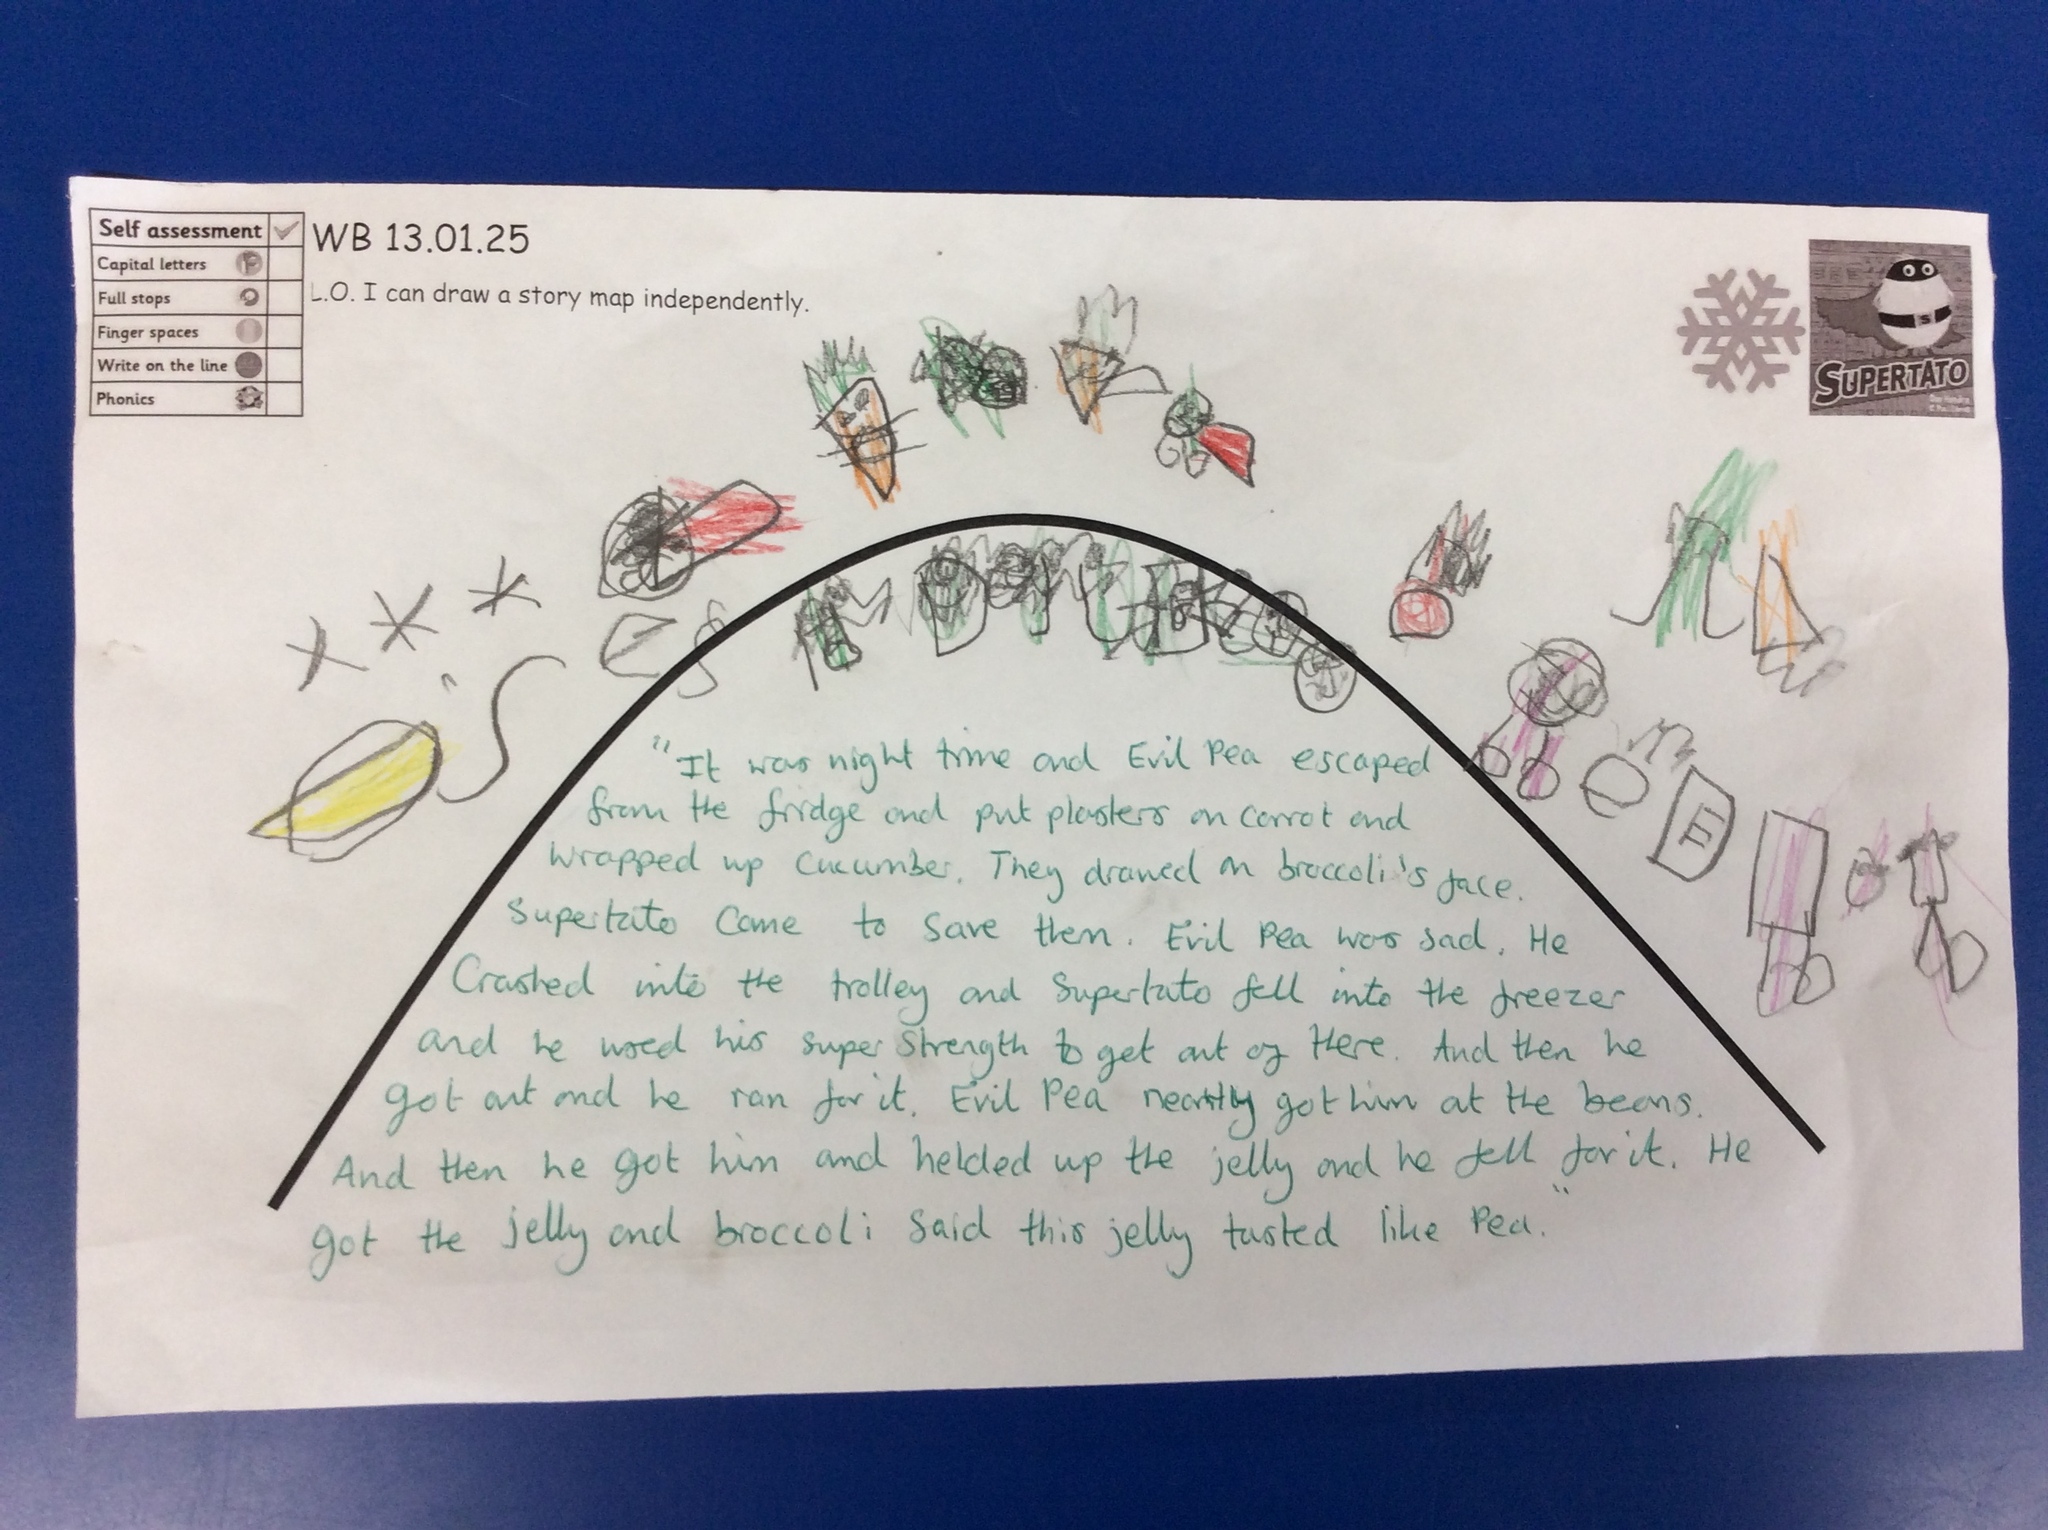 Self assessment
Capital letters
Full stops
Finger spaces
Write on the line
Phonics
WB 13.01.25
L.O. I can draw a story map independently.
SUPERTATO
"It was night time and Evil Pea escaped
from the fridge and put plasters on carrot and
wrapped up cucumber. They drawed on broccoli's face.
Supertato came to save them. Evil Pea was sad. He
Crashed into the trolley and Supertato fell into the freezer
and he used his super strength to get out of there. And then he
got out and he ran for it. Evil Pea nearly got him at the beans.
And then he got him and helded up the jelly and he fell for it. He
got the jelly and broccoli said this jelly tasted like Pea."
F